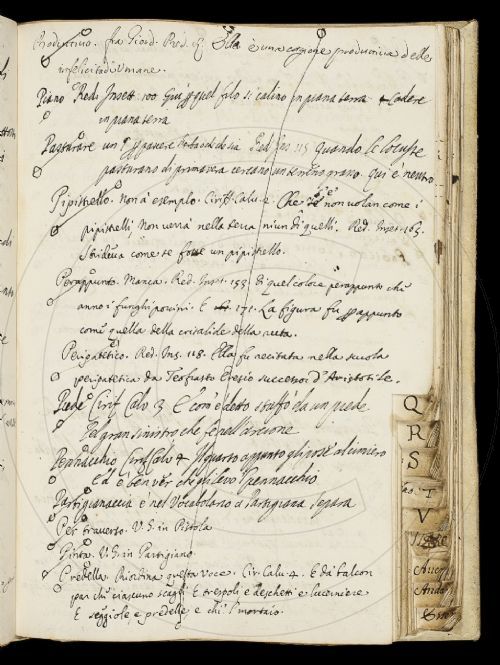 Produttivo. fra Giord. Pred. R. Ella è una cagione produttiva delle
infelicità Umane.
Piano Redi Insett. 100. Quei quel filo si calino in piana terra + Cadere
in piana terra
Pasturare un Red. Ins 115 quando le locuste
pasturano di primavera cercano un terreno grasso. qui è neutro
Pipistrello. Non à esemplo. Ciriff. Calv. 2. Che se non volan come i
pipistrelli, Non verrà nella terra niun di quelli. Red. Inset. 165.
Strideva come se fosse un pipistrello.
Perappunto. Manca. Red. Inset. 155. di quel colore perappunto che
anno i funghi porcini. E 171. La figura fu appunto
come quella della crisalide della ruta.
Peripatetico. Red. Ins. 118. Ella fu recitata nella scuola
peripatetica da Teofrasto Eresio successor d'Aristotile.
Piede Cirif Calv 3. E com'è detto staffò da un piede
Pel gran sinistro che fe nell'arcione
Pennacchio Cirif Calv 4 Il quarto appunto gli pose al cimiero
Ed è ben ver che gli levò 'l pennacchio
Partigianaccia è nel Vocabolario a Partigiana separa
Per traverso. V. S. in Pistola
Pinta. V. S. in Partigiano.
Predella. questa voce. Cir. Calv. 4. E da falcon
par ch' ciascuno scagli E trespoli e deschetti e lucerniere
E seggiole e predelle, e chi 'l mortaio.
Q
R
S
T
V